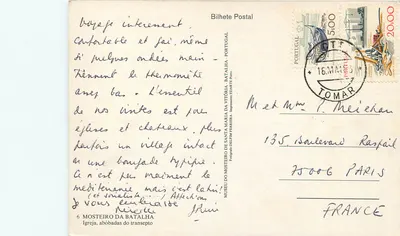 Bilhete Postal
Voyage intéressant.
Confortable et gai, même
si quelques ondées main-
tiennent le thermomètre
assez bas. L'essentiel
de nos visites est pour
églises et châteaux, plus
parfois un village intact
ou une bourgade typique.
Ce n'est pas vraiment la
méditerranée mais c'est latin!
(et somnolent,) Affection
je vous embrasse
Mireille
6 MOSTEIRO DA BATALHA
Igreja, abóbadas do transepto
MUSEU DO MOSTEIRO DE SANTA MARIA DA VITÓRIA. BATALHA - PORTUGAL
PORTUGAL
5.00
20.00
CTT
16. MAI
TOMAR
M et Mme
135 Boulevard Raspail
75006 PARIS
FRANCE